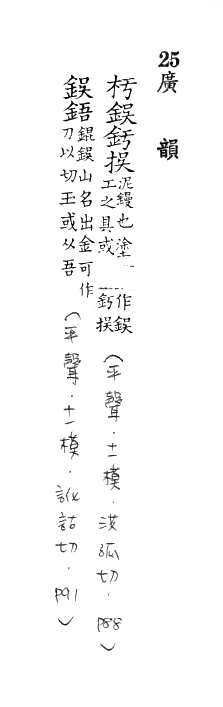 25廣韻
杇鋘釫
泥鏝也塗
工之具或
作鋘
釫
(平聲.十一模.漢孤切.P88)
鋘鋙
錕鋘山名出金可作
刀以切玉或从吾
(平聲.十一模.訛詁切.P91)